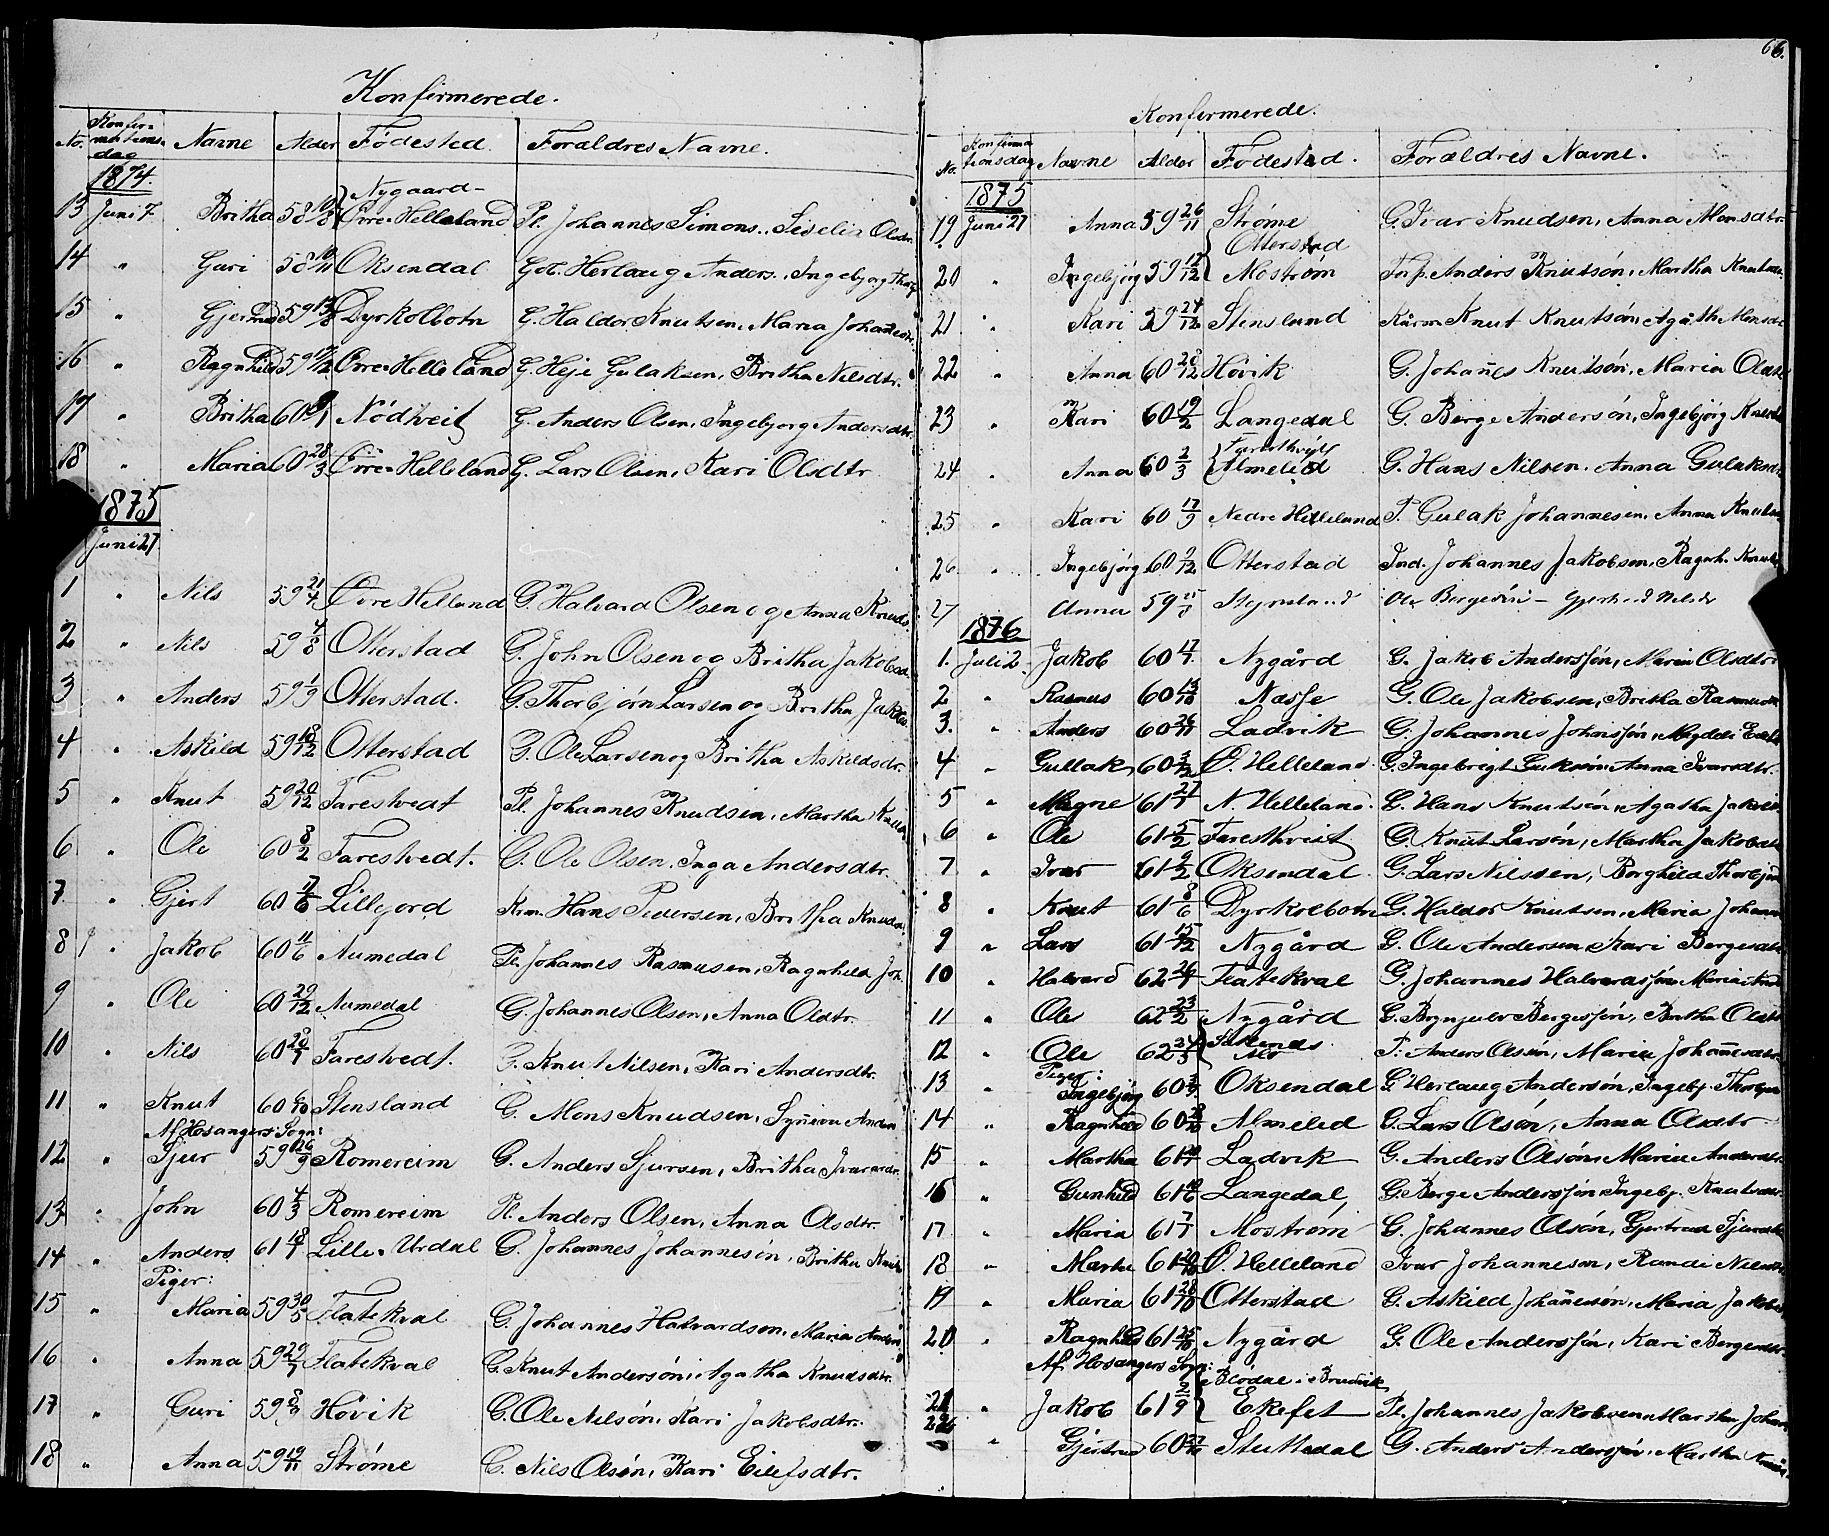 Konfirmerede.
No. Konfirmationsdag Navne Alder Fødested. Forældres Navne.
1874.
Nygaard-
13 Juni 7 Britha 58 Øvre-Helleland Pl. Johannes Simons., Siselia Olsdtr
14 " Guri 58 Oksendal Gb. Herlaug Anders., Ingebjorg
15 " 59 Dyrkolbotn G. Haldor Knutsen, Maria Johannesdtr.
16 " Ragnhild 59 Øvre-Helleland G. Heje Gulaksen, Britha Nilsdtr.
17 " Britha 60 Nødtveit G. Anders Olsen, Ingebjorg Andersdtr.
18 " Maria 60 28/3 Øvre-Helleland G. Lars Olsen, Kari Olsdtr
1875
Juni 27
1 " Nils 59 21/4 Øvre Helland G. Halvard Olsen og Anna Knuds.
2 " Nils 59 4/8 Otterstad G. John Olsen og Britha Jakobsd.
3 " Anders 59 1/9 Otterstad. G. Thorbjørn Larsen og Britha Jakobs
4 " Askild 59 18/12 Otterstad G. Ole Larsen og Britha Askildsdtr.
5 " Knut 59 20/12 Farestvedt Pl. Johannes Knudsen, Martha
6 " Ole 60 8/2 Farestvedt. G. Ole Olsen, Inga Andersdtr.
7 " Gjert 60 Lillejord Krm. Hans Pedersen, Britha Knudsd.
8 " Jakob 60 11/6 Aumedal Pl. Johannes Rasmusen, Ragnhild Joh.
9 " Ole 60 29/12 Aumedal G. Johannes Olsen, Anna Olsdtr.
10 " Nils 60 28/7 Farestvedt. G. Knut Nilsen, Kari Andersdtr.
11 " Knut 60 Stensland G. Mons Knudsen, Synneva Anders
Af Hosangers Sogn:
12 " Sjur 59 26/9 Romereim G. Anders Sjursen, Britha Ivarsdr.
13 " John 60 4/3 Romereim Pl. Anders Olsen, Anna Olsdtr.
14 " Anders 61 18/1 Lille-Urdal G. Johannes Johannesen, Britha
Piger:
15 " Maria 59 30/5 Flatekval G. Johannes Halvardsen, Maria Anders
16 " Anna 59 29/7 Flatekval G. Knut Andersón, Agatha Knudsdtr.
17 " Guri 59 Høvik G. Ole Nilsón, Kari Jakobsdtr.
18 " Anna 59 19/11 Strøme G. Nils Olsón, Kari Eilefsdtr.
66.
Konfermerede.
No. Konfirmationsdag Navne Alder Fødestad. Foræeldres Navne.
1875
19 Juni 27 Anna 59 26/11 Strøme G. Ivar Knudsen, Anna Monsdtr.
Otterstad
20 " Ingebjörg 59 17/12 Mostrøm Anders Knutsón, Martha Knuts
21 " Kari 59 24/12 Stensland Kårm. Knut Knutsón, Agåth Monsd
22 " Anna 60 28/12 Høvik G. Johañes Knutsón, Maria Olsdtr
23 " Kari 60 19/2 Langedal G. Berge Andersón, Ingebjörg
Faresthveit
24 " Anna 60 2/3 Almelid G. Hans Nilsen. Anna Gulaksd
25 " Kari 60 17/9 Nedre Helleland P. Gulak Johannesen, Anna Knuts
26 " Ingebjörg 60 9/12 Otterstad Ind. Johannes Jakobsen, Ragnh. Knuts
27 Anna 59 Ole Bergesen -
1876
1. Juli 2. Jakob 60 Nygård G. Jakob Andersson, Maria Olsdtr
2 " Rasmus 60 Næsse G. Ole Jakobsen, Britha Rasmus
3. " Anders 60 26/11 Ladvik G. Johannes Johnssón,
4 " Gullak 60 Ø. Helleland. G. Ingebrigt Anna Ivarsdtr.
5 " Magne 61 27/1 N. Helleland. G. Hans Knutsón, Agatha Jakobs
6 " Ole 61 5/2 Faresthveit G. Knut Larsón, Martha Jakobsd
7 " Ivar 61 9/2 Oksendal G. Lars Nilssen, Borghild Thorbjörn
8 " Knut 61 8/6 Dyrkolbotn G. Haldor Knutsen, Maria Johann
9 " Lars 61 15/12 Nygård G. Ole Andersen, Kari Bergesdtr
10 " Halvard 62 Flatekval G. Johannes Halvardssón, Maria And
11 " Ole 62 23/2 Nygård G. Brynjulv Bergesson, Britha Olsdtr
12 " Ole 62 P. Anders Olsón, Maria Johañesdtr
Piger:
13 " Ingebjörg 60 Oksendal G. Herlaug Andersón, Ingebj.
14 " Ragnhild 60 Almelid G. Lars Olsón, Anna Olsdtr
15 " Martha 61 Ladvik G. Anders Olsón, Maria Andersdtr.
16 " Gunhild 61 Langedal G. Berge Anderssón, Ingebj. Knutsdtr.
17 " Maria 61 7/7 Mostrøm G. Johannes Olsón, Gjertrud
18 " 61 Ø. Helleland Ivar Johannesen, Randi Nilsdtr
19 " Maria 61 28/10 Otterstad G. Askild Johañesón, Maria Jakobs
20 " Ragnhild 61 Nygård G. Ole Anderssón, Kari Bergesdtr.
Af Hosangers Sogn:
21 " Jakob 61 2/9 Ekefet Pl. Johannes Jakobsen Martha Johan
22 " Gjertrud 60 Stuttedal G. Anders Anderssón, Martha